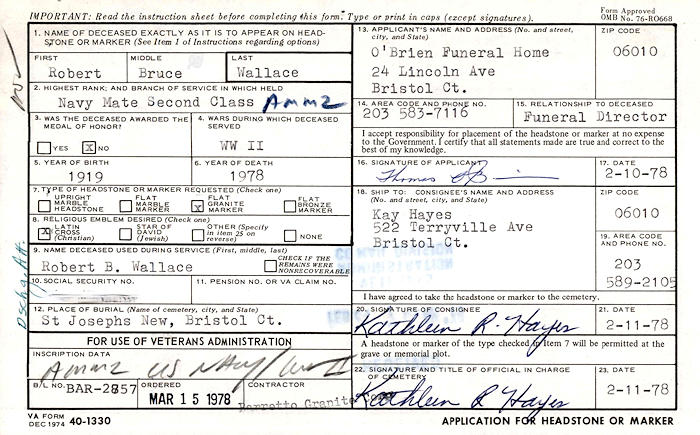 IMPORTANT: Read the instruction sheet before completing this form. Type or print in caps (except signatures).
Form Approved
OMB No. 76-RO668
1. NAME OF DECEASED EXACTLY AS IT IS TO APPEAR ON HEAD-
STONE OR MARKER (See Item 1 of Instructions regarding options)
FIRST MIDDLE LAST
Robert Bruce Wallace
2. HIGHEST RANK; AND BRANCH OF SERVICE IN WHICH HELD
Navy Mate Second Class AMM2
3. WAS THE DECEASED AWARDED THE
MEDAL OF HONOR?
YES X NO
4. WARS DURING WHICH DECEASED
SERVED
WW II
5. YEAR OF BIRTH
1919
6. YEAR OF DEATH
1978
7. TYPE OF HEADSTONE OR MARKER REQUESTED (Check one)
UPRIGHT MARBLE HEADSTONE
FLAT MARBLE MARKER
X FLAT GRANITE MARKER
FLAT BRONZE MARKER
8. RELIGIOUS EMBLEM DESIRED (Check one)
X LATIN CROSS (Christian)
STAR OF DAVID (Jewish)
OTHER (Specify in item 25 on reverse)
NONE
9. NAME DECEASED USED DURING SERVICE (First, middle, last)
Robert B. Wallace
CHECK IF THE REMAINS WERE NONRECOVERABLE
10. SOCIAL SECURITY NO.
11. PENSION NO. OR VA CLAIM NO.
12. PLACE OF BURIAL (Name of cemetery, city, and State)
St Josephs New, Bristol Ct.
FOR USE OF VETERANS ADMINISTRATION
INSCRIPTION DATA
AMM2 US NAVY WW II
B/L NO. BAR-2857
ORDERED
MAR 15 1978
CONTRACTOR
Granite
VA FORM
DEC 1974 40-1330
13. APPLICANT'S NAME AND ADDRESS (No. and street,
city, and State)
O'Brien Funeral Home
24 Lincoln Ave
Bristol Ct.
ZIP CODE
06010
14. AREA CODE AND PHONE NO.
203 583-7116
15. RELATIONSHIP TO DECEASED
Funeral Director
I accept responsibility for placement of the headstone or marker at no expense
to the Government. I certify that all statements made are true and correct to the
best of my knowledge.
16. SIGNATURE OF APPLICANT
Thomas
17. DATE
2-10-78
18. SHIP TO: CONSIGNEE'S NAME AND ADDRESS
(No. and street, city, and State)
Kay Hayes
522 Terryville Ave
Bristol Ct.
ZIP CODE
06010
19. AREA CODE
AND PHONE NO.
203
589-2105
I have agreed to take the headstone or marker to the cemetery.
20. SIGNATURE OF CONSIGNEE
Kathleen R. Hayes
21. DATE
2-11-78
A headstone or marker of the type checked in Item 7 will be permitted at the
grave or memorial plot.
22. SIGNATURE AND TITLE OF OFFICIAL IN CHARGE
OF CEMETERY
Kathleen R Hayes
23. DATE
2-11-78
APPLICATION FOR HEADSTONE OR MARKER